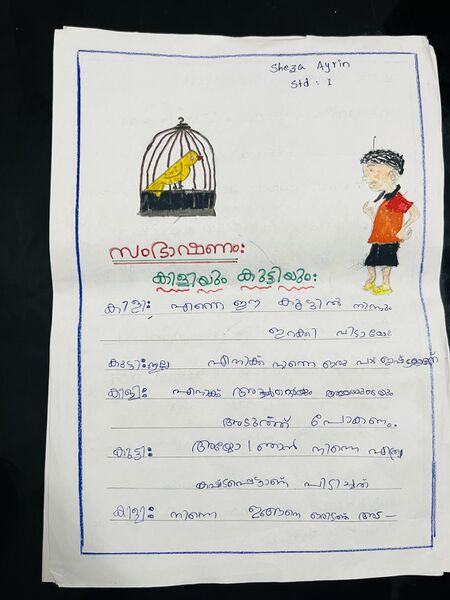 Sheza Ayrin
Std : I
സംഭാഷണം:
കിളിയും കുട്ടിയും:
കിളി: എന്നെ ഈ കൂട്ടിൽ നിന്നും
ഇറക്കി വിടാമോ
കുട്ടി: ഇല്ല എനിക്ക് നിന്നെ ഒരു പാട് ഇഷ്ടമാണ്
കിളി: എനിക്ക് അച്ഛന്റെയും അമ്മയുടെയും
അടുത്ത് പോകണം.
കുട്ടി: അയ്യോ! ഞാൻ നിന്നെ എത്ര
കഷ്ടപ്പെട്ടാണ് പിടിച്ചത്
കിളി: നിന്നെ ഇങ്ങനെ